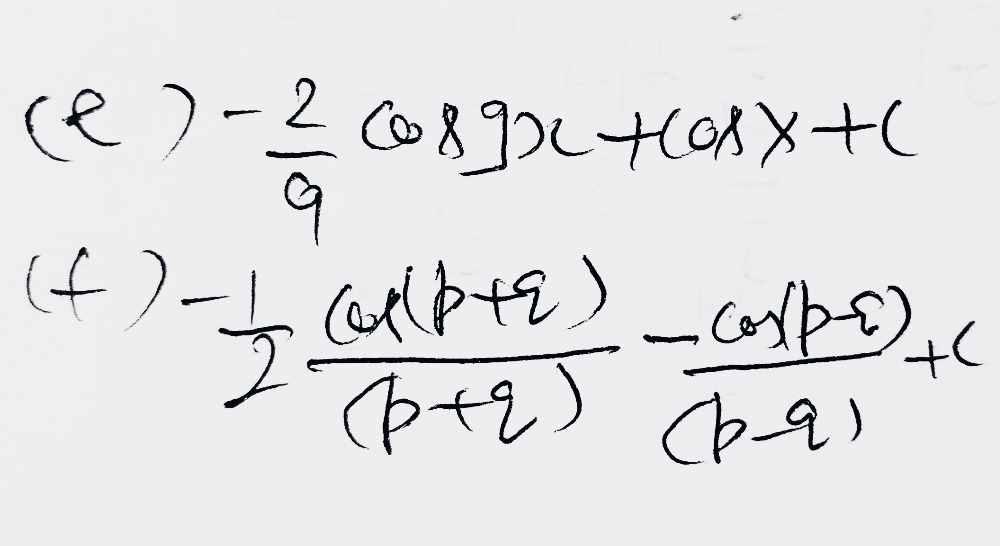 (e) -2/9 cos 9x + cosx + c
(f) -1/2 cos(p+q)/(p+q) - cos(p-q)/(p-q) + c